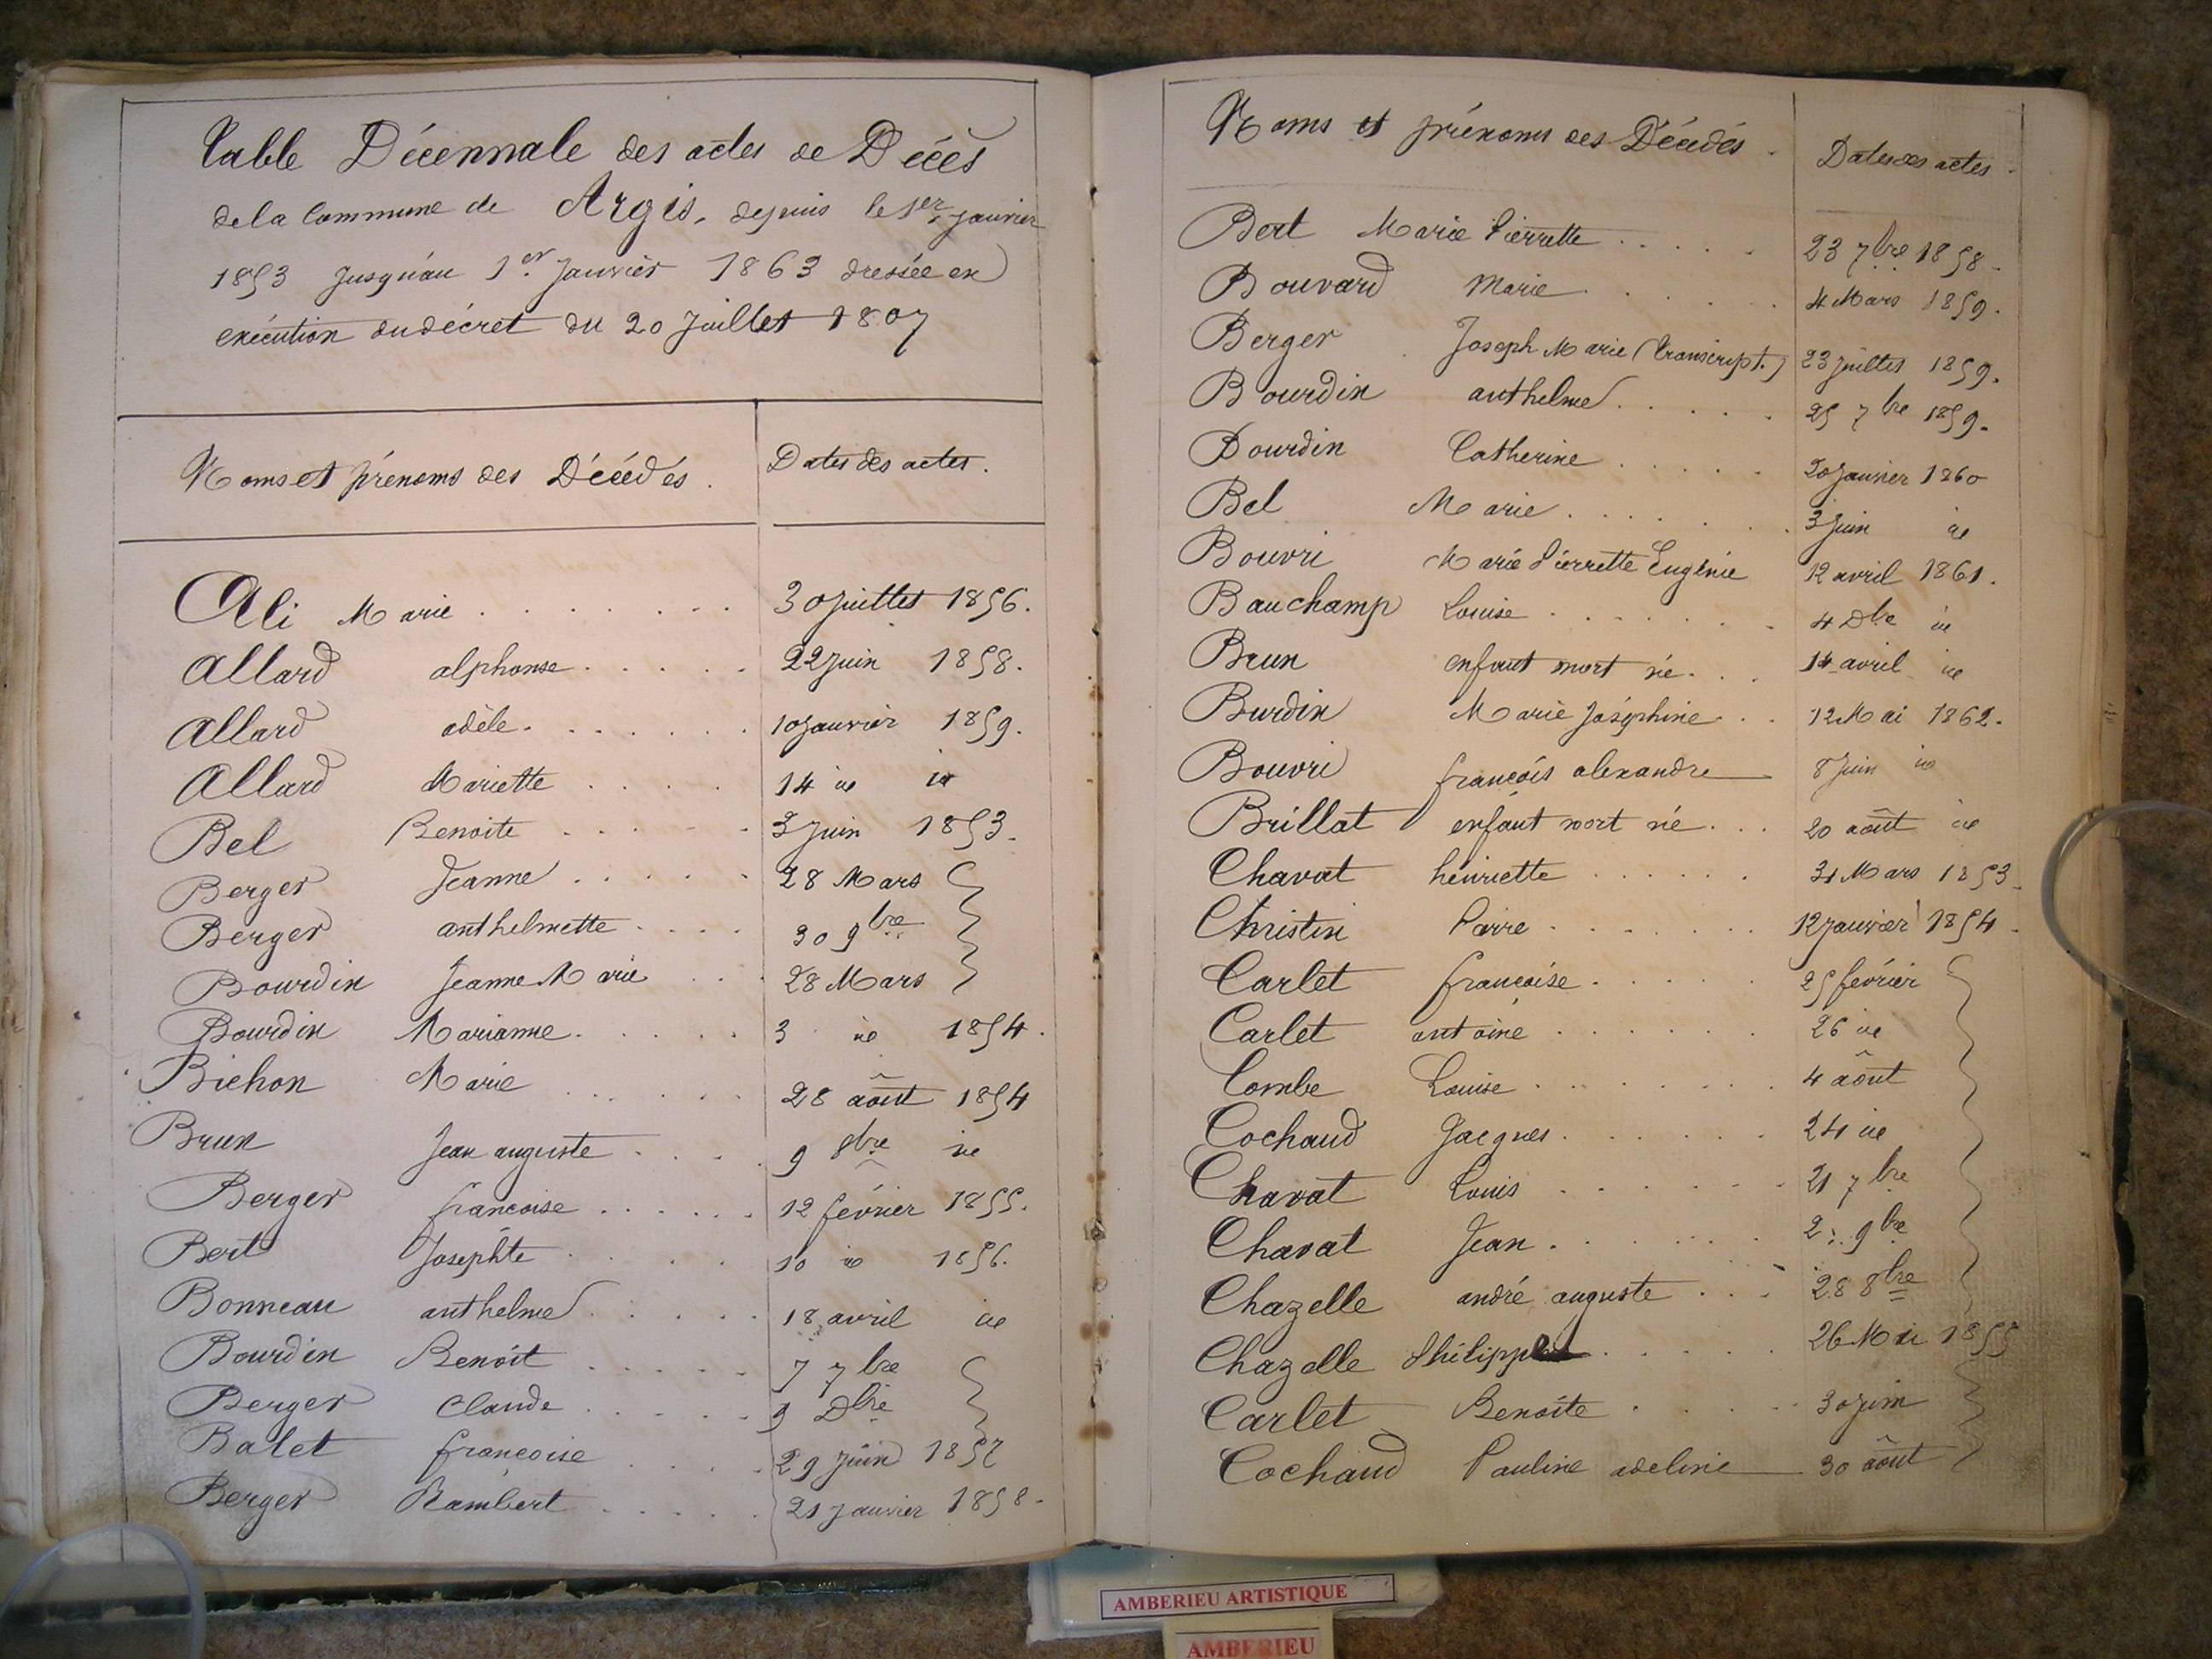 Table Décennale des actes de Décès
de la Commune de Argis, depuis le 1er janvier
1853 jusqu'au 1er Janvier 1863 dressée en
exécution du décret du 20 Juillet 1807
Noms et prénoms des Décédés. Dates des actes.
Ali Marie . . . . . . . . 30 juillet 1856.
Allard alphonse . . . . . 22 juin 1858.
Allard adèle . . . . . . . 10 janvier 1859.
Allard Mariette . . . . . 14 id id
Bel Benoite . . . . . 3 Juin 1853.
Berger Jeanne . . . . . 28 Mars
Berger anthelmette . . . . 30 9bre
Bourdin Jeanne Marie . . . 28 Mars
Bourdin Marianne . . . . . 3 id 1854.
Bichon Marie . . . . . . 28 août 1854
Brun Jean auguste . . . . 9 8bre id
Berger francoise . . . . . . 12 février 1855.
Bert Josephte . . . . 10 id 1856.
Bonneau anthelme . . . . . 18 avril id
Bourdin Benoît . . . . . 7 7bre
Berger Claude . . . . . 9 Dbre
Balet francoise . . . . 29 Juin 1857
Berger Rambert . . . . . 21 janvier 1858.
Noms et prénoms des Décédés. Dates des actes.
Bert Marie Pierrette . . . . . 23 7bre 1858.
Bouvard Marie . . . . . 4 Mars 1859.
Berger Joseph Marie (transcript.) 23 juillet 1859.
Bourdin anthelme . . . . . 25 7bre 1859.
Bourdin Catherine . . . . . 20 janvier 1860
Bel Marie . . . . . . . 3 Juin id
Bouvri Marie Pierrette Eugénie 12 avril 1861.
Bauchamp Louise . . . . . . . 4 Dbre id
Brun enfant mort né . . . 14 avril id
Burdin Marie Joséphine . . 12 Mai 1862.
Bouvri françois alexandre 8 Juin id
Brillat enfant mort né . . . 20 août id
Chavat henriette . . . . . . 31 Mars 1853.
Christin Pierre . . . . . . . 12 janvier 1854.
Carlet françoise . . . . . 25 février
Carlet antoine . . . . . . 26 id
Combe Louise . . . . . . . 4 août
Cochaud Jacques . . . . . . 24 id
Chavat Louis . . . . . . . 21 7bre
Chavat Jean . . . . . . 2 9bre
Chazelle andré auguste . . . 28 8bre
Chazelle Philippe . . . . . 26 Mai 1855
Carlet Benoîte . . . . 30 juin
Cochaud Pauline adeline 30 août
AMBERIEU ARTISTIQUE
AMBERIEU